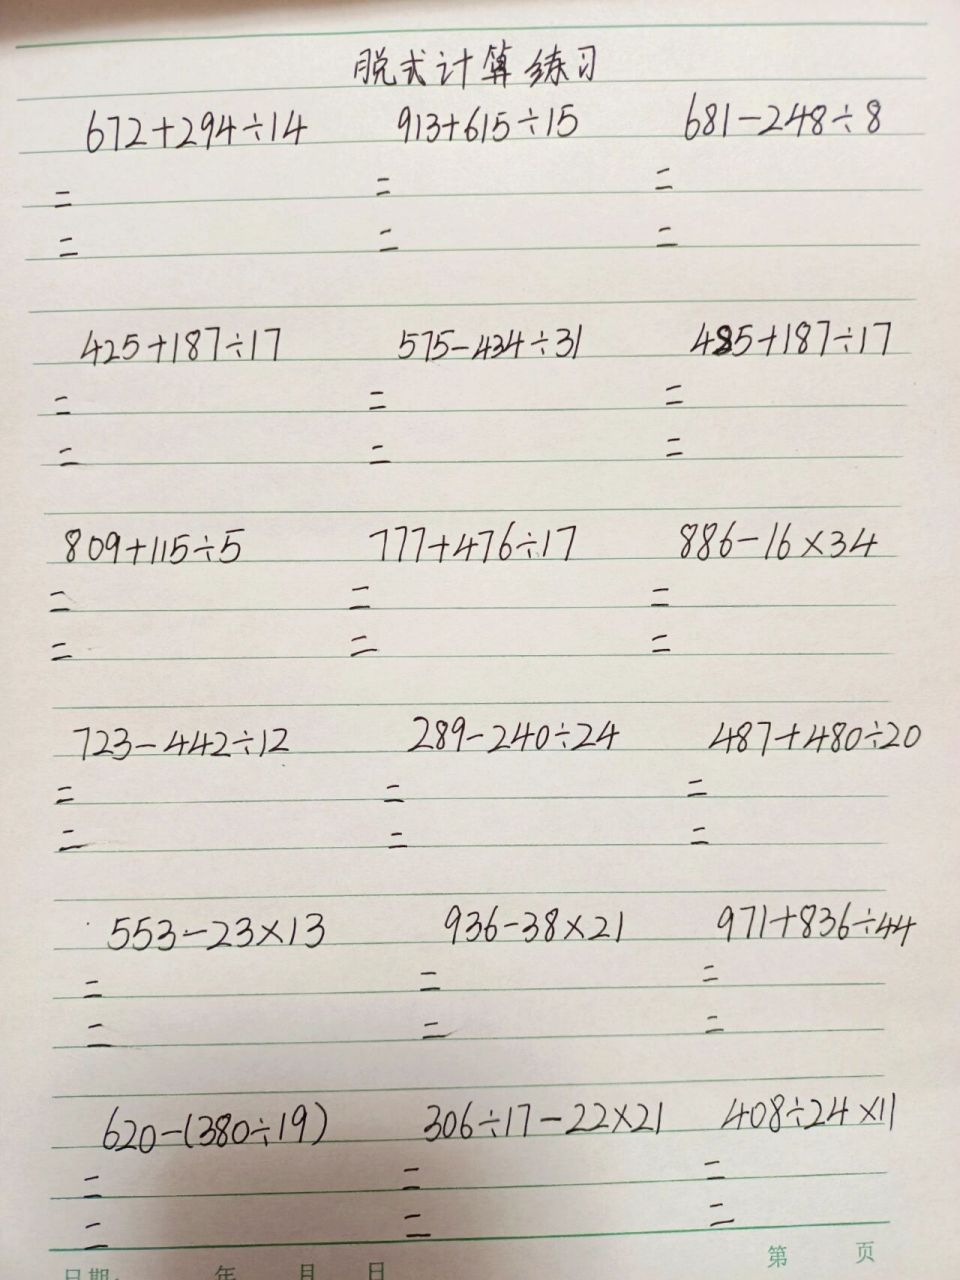 脱式计算练习
672+294÷14 913+615÷15 681-248÷8
= = =
= = =
425+187÷17 575-434÷31 485+187÷17
= = =
= = =
809+115÷5 777+476÷17 886-16×34
= = =
= = =
723-442÷12 289-240÷24 487+480÷20
= = =
= = =
553-23×13 936-38×21 971+836÷44
= = =
= = =
620-(380÷19) 306÷17-22×21 408÷24×11
= = =
= = =
日期: 年 月 日 第 页